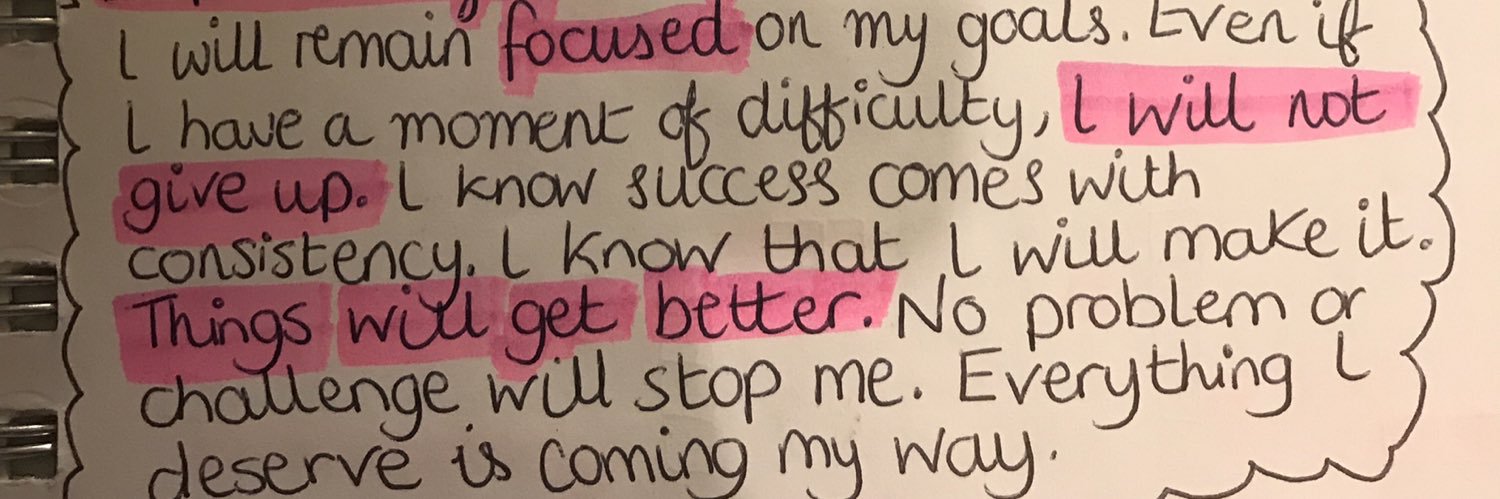 I will remain focused on my goals. Even if
I have a moment of difficulty, I will not
give up. I know success comes with
consistency. I know that I will make it.
Things will get better. No problem or
challenge will stop me. Everything I
deserve is coming my way.